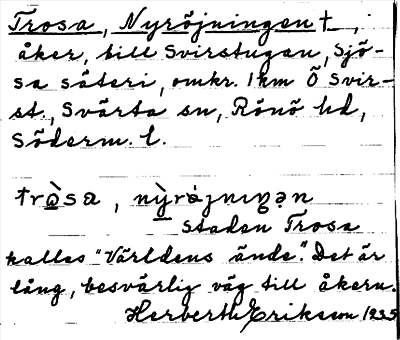 Trosa, Nyröjningen †,
åker, till Svirstugan, Sjö-
sa säteri, omkr. 1 km Ö Svir-
st., Svärta sn, Rönö hd,
Söderm. l.
staden Trosa
kallas "Världens ände". Det är
lång, besvärlig väg till åkern.
Herberth Eriksson 1935